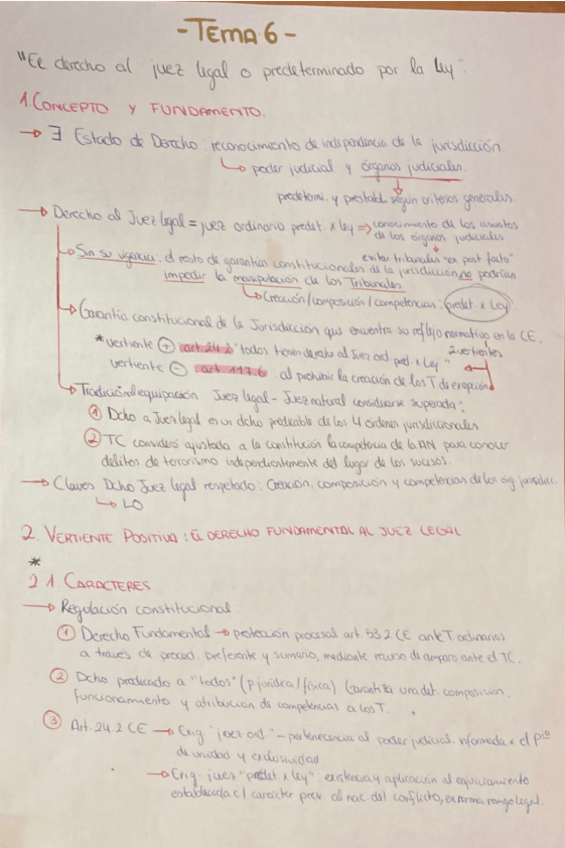 - TEMA 6 -
"El derecho al juez legal o predeterminado por la Ley".
1. CONCEPTO Y FUNDAMENTO.
→ ∃ Estado de Derecho: reconocimiento de independencia de la jurisdicción.
↳ poder judicial y órganos judiciales.
predeterm. y prestabl. según criterios generales.
→ Derecho al Juez legal = juez ordinario predet. x ley => conocimiento de los asuntos
de los órganos judiciales
evitar tribunales "ex post facto"
↳ Sin su vigencia, el resto de garantías constitucionales de la jurisdicción no podrían
impedir la manipulación de los Tribunales
↳ Creación/composición/competencias: predet x Ley
↳ Garantía constitucional de la Jurisdicción que encuentra su reflejo normativo en la CE.
2 vertientes
* vertiente ⊕ art. 24.2 "todos tienen derecho al Juez ord. pred x Ley"
vertiente ⊖ art 117.6: al prohibir la creación de los T de excepción
↳ Tradicional equiparación Juez legal - Juez natural considerarse superada:
① Dcho a Juez legal es un dcho predicable de los 4 órdenes jurisdiccionales
② TC consideró ajustada a la constitución la competencia de la AN para conocer
delitos de terrorismo independientemente del lugar de los sucesos.
→ Claves Dcho Juez legal respetado: Creación, composición y competencias de los órg. jurisdicc.
↳ LO
2. VERTIENTE POSITIVA: EL DERECHO FUNDAMENTAL AL JUEZ LEGAL
*
2.1. CARACTERES
→ Regulación constitucional
① Derecho Fundamental → protección procesal art. 53.2 CE ante T ordinarios
a través de proced. preferente y sumario, mediante recurso de amparo ante el TC.
② Dcho predicado a "todos" (p jurídica/física) Garantiza una det. composición,
funcionamiento y atribución de competencias a los T.
③ Art. 24.2 CE → Exig. "juez ord." - pertenencia al poder judicial informada x el pio
de unidad y exclusividad
→ Exig. juez "predet x ley": existencia y aplicación al enjuiciamiento
establecida c/ carácter prev. al nac. del conflicto, en norma rango legal.